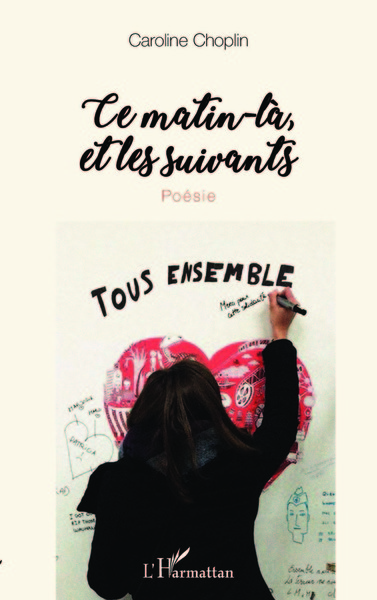 Caroline Choplin
Ce matin-là,
et les suivants
Poésie
TOUS ENSEMBLE
Merci pour
cette
L'Harmattan